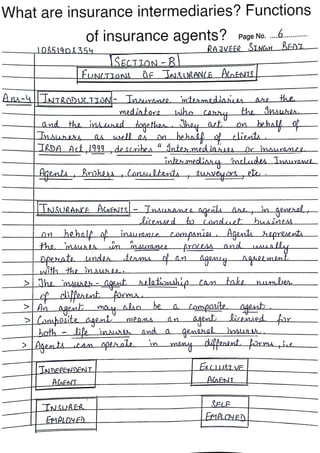 What are insurance intermediaries? Functions
of insurance agents? Page No. ....6............
10851901354 RAJVEER SINGH BEDI
SECTION - B
FUNCTIONS OF INSURANCE AGENTS
Ans-4 INTRODUCTION - Insurance intermediaries are the
mediators who carry the Insurer
and the insured together. They act on behalf of
Insurers as well as on behalf of clients.
IRDA Act, 1999, describes " Intermediaries or insurance
intermediary includes Insurance
Agents, Brokers, Consultants, surveyors, etc.
INSURANCE AGENTS - Insurance agents are, in general,
licensed to conduct business
on behalf of insurance companies. Agents represents
the insurer in insurance process and usually
operate under terms of an agency agreement
with the insurer.
> The insurer - agent relationship can take number
of different forms.
> An agent may also be a composite agent.
> Composite agent means an agent licensed for
both - life insurer and a general insurer.
> Agents can operate in many different forms, i.e
INDEPENDENT AGENT
EXCLUSIVE AGENT
INSURER EMPLOYED
SELF EMPLOYED